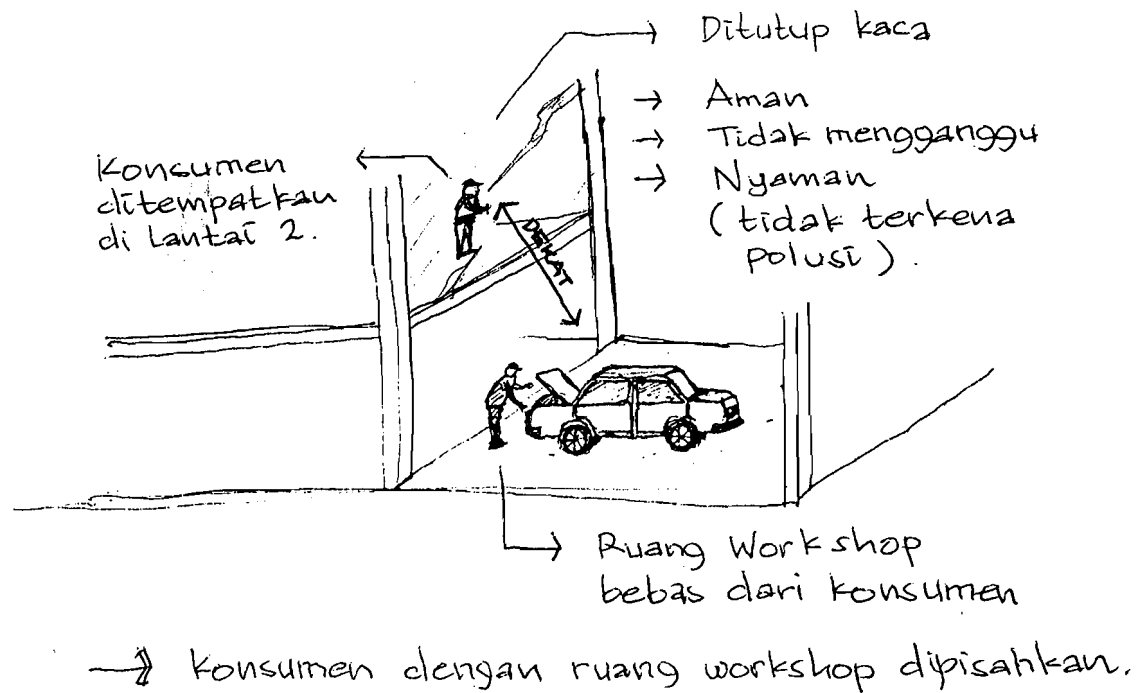 Ditutup kaca
→ Aman
→ Tidak mengganggu
→ Nyaman
(tidak terkena
polusi).
Konsumen
ditempatkan
di Lantai 2.
DEKAT
Ruang Workshop
bebas dari konsumen
→ konsumen dengan ruang workshop dipisahkan.